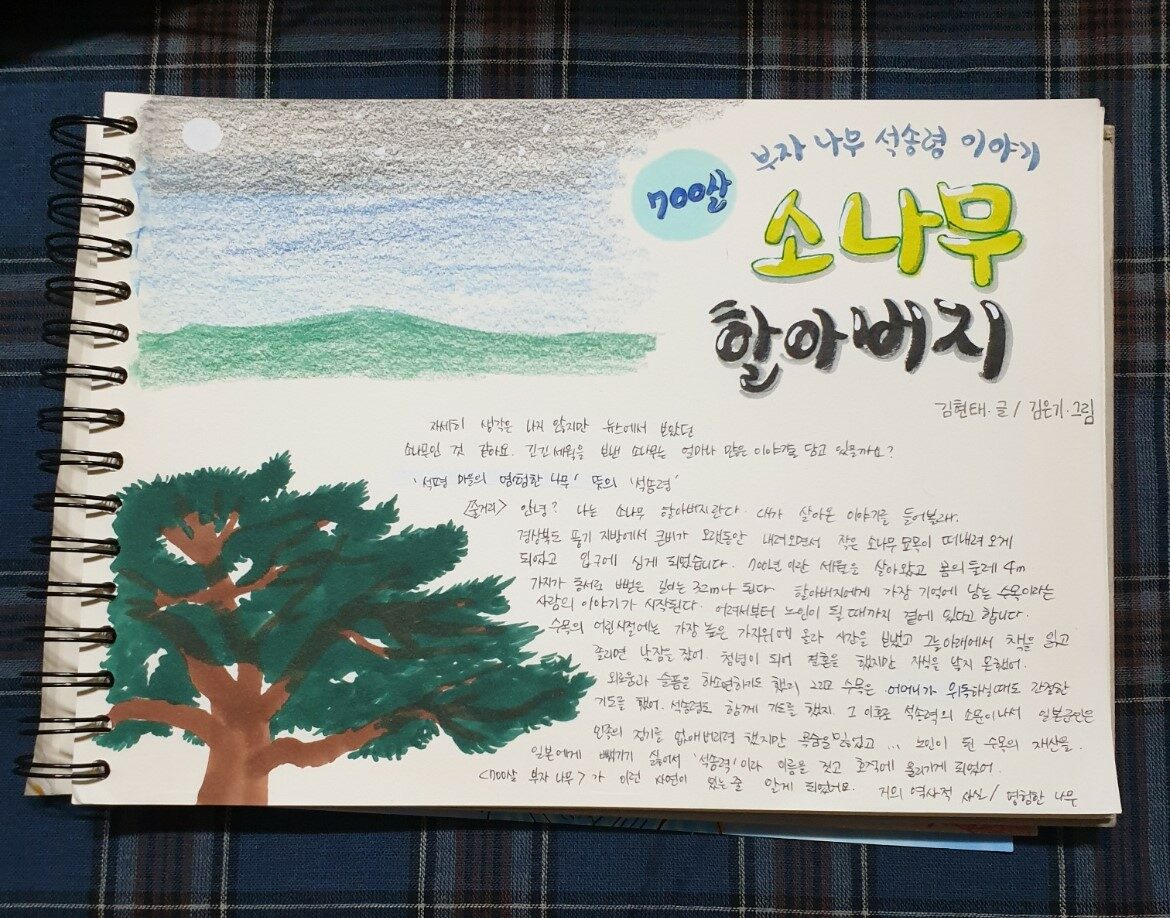 부자 나무 석송령 이야기
700살
소나무
할아버지
김현태·글 / 김은기·그림
자세히 생각은 나지 않지만 뉴스에서 보았던
소나무인 것 같아요. 긴긴 세월을 보낸 소나무는 얼마나 많은 이야기를 담고 있을까요?
'석평 마을의 영험한 나무' 뜻의 '석송령'
<줄거리> 안녕? 나는 소나무 할아버지란다. 내가 살아온 이야기를 들어볼래.
경상북도 풍기 지방에서 큰비가 오랫동안 내려오면서 작은 소나무 묘목이 떠내려 오게
되었고 입구에 심게 되었습니다. 700년 이란 세월을 살아왔고 몸의 둘레 4m
가지가 동서로 뻗은 길이는 32m나 된다. 할아버지에게 가장 기억에 남는 수목이라는
사람의 이야기가 시작된다. 어려서부터 노인이 될 때까지 곁에 있다고 합니다.
수목의 어린시절에는 가장 높은 가지위에 올라 시간을 보냈고 그늘아래에서 책을 읽고
졸리면 낮잠을 잤어. 청년이 되어 결혼을 했지만 자식을 낳지 못했어.
외로움과 슬픔을 하소연하기도 했어 그리고 수목은 어머니가 위독하실때도 간절한
기도를 했어. 석송령도 함께 기도를 했지. 그 이후로 석송령의 소문이나서 일본군인은
민족의 정기를 없애버리려 했지만 목숨을 잃었고 ... 노인이 된 수목의 재산을
일본에게 빼앗기기 싫어서 '석송령'이라 이름을 짓고 호적에 올리게 되었어.
<700살 부자 나무>가 이런 사연이 있는 줄 알게 되었어요. 거의 역사적 사실/ 영험한 나무